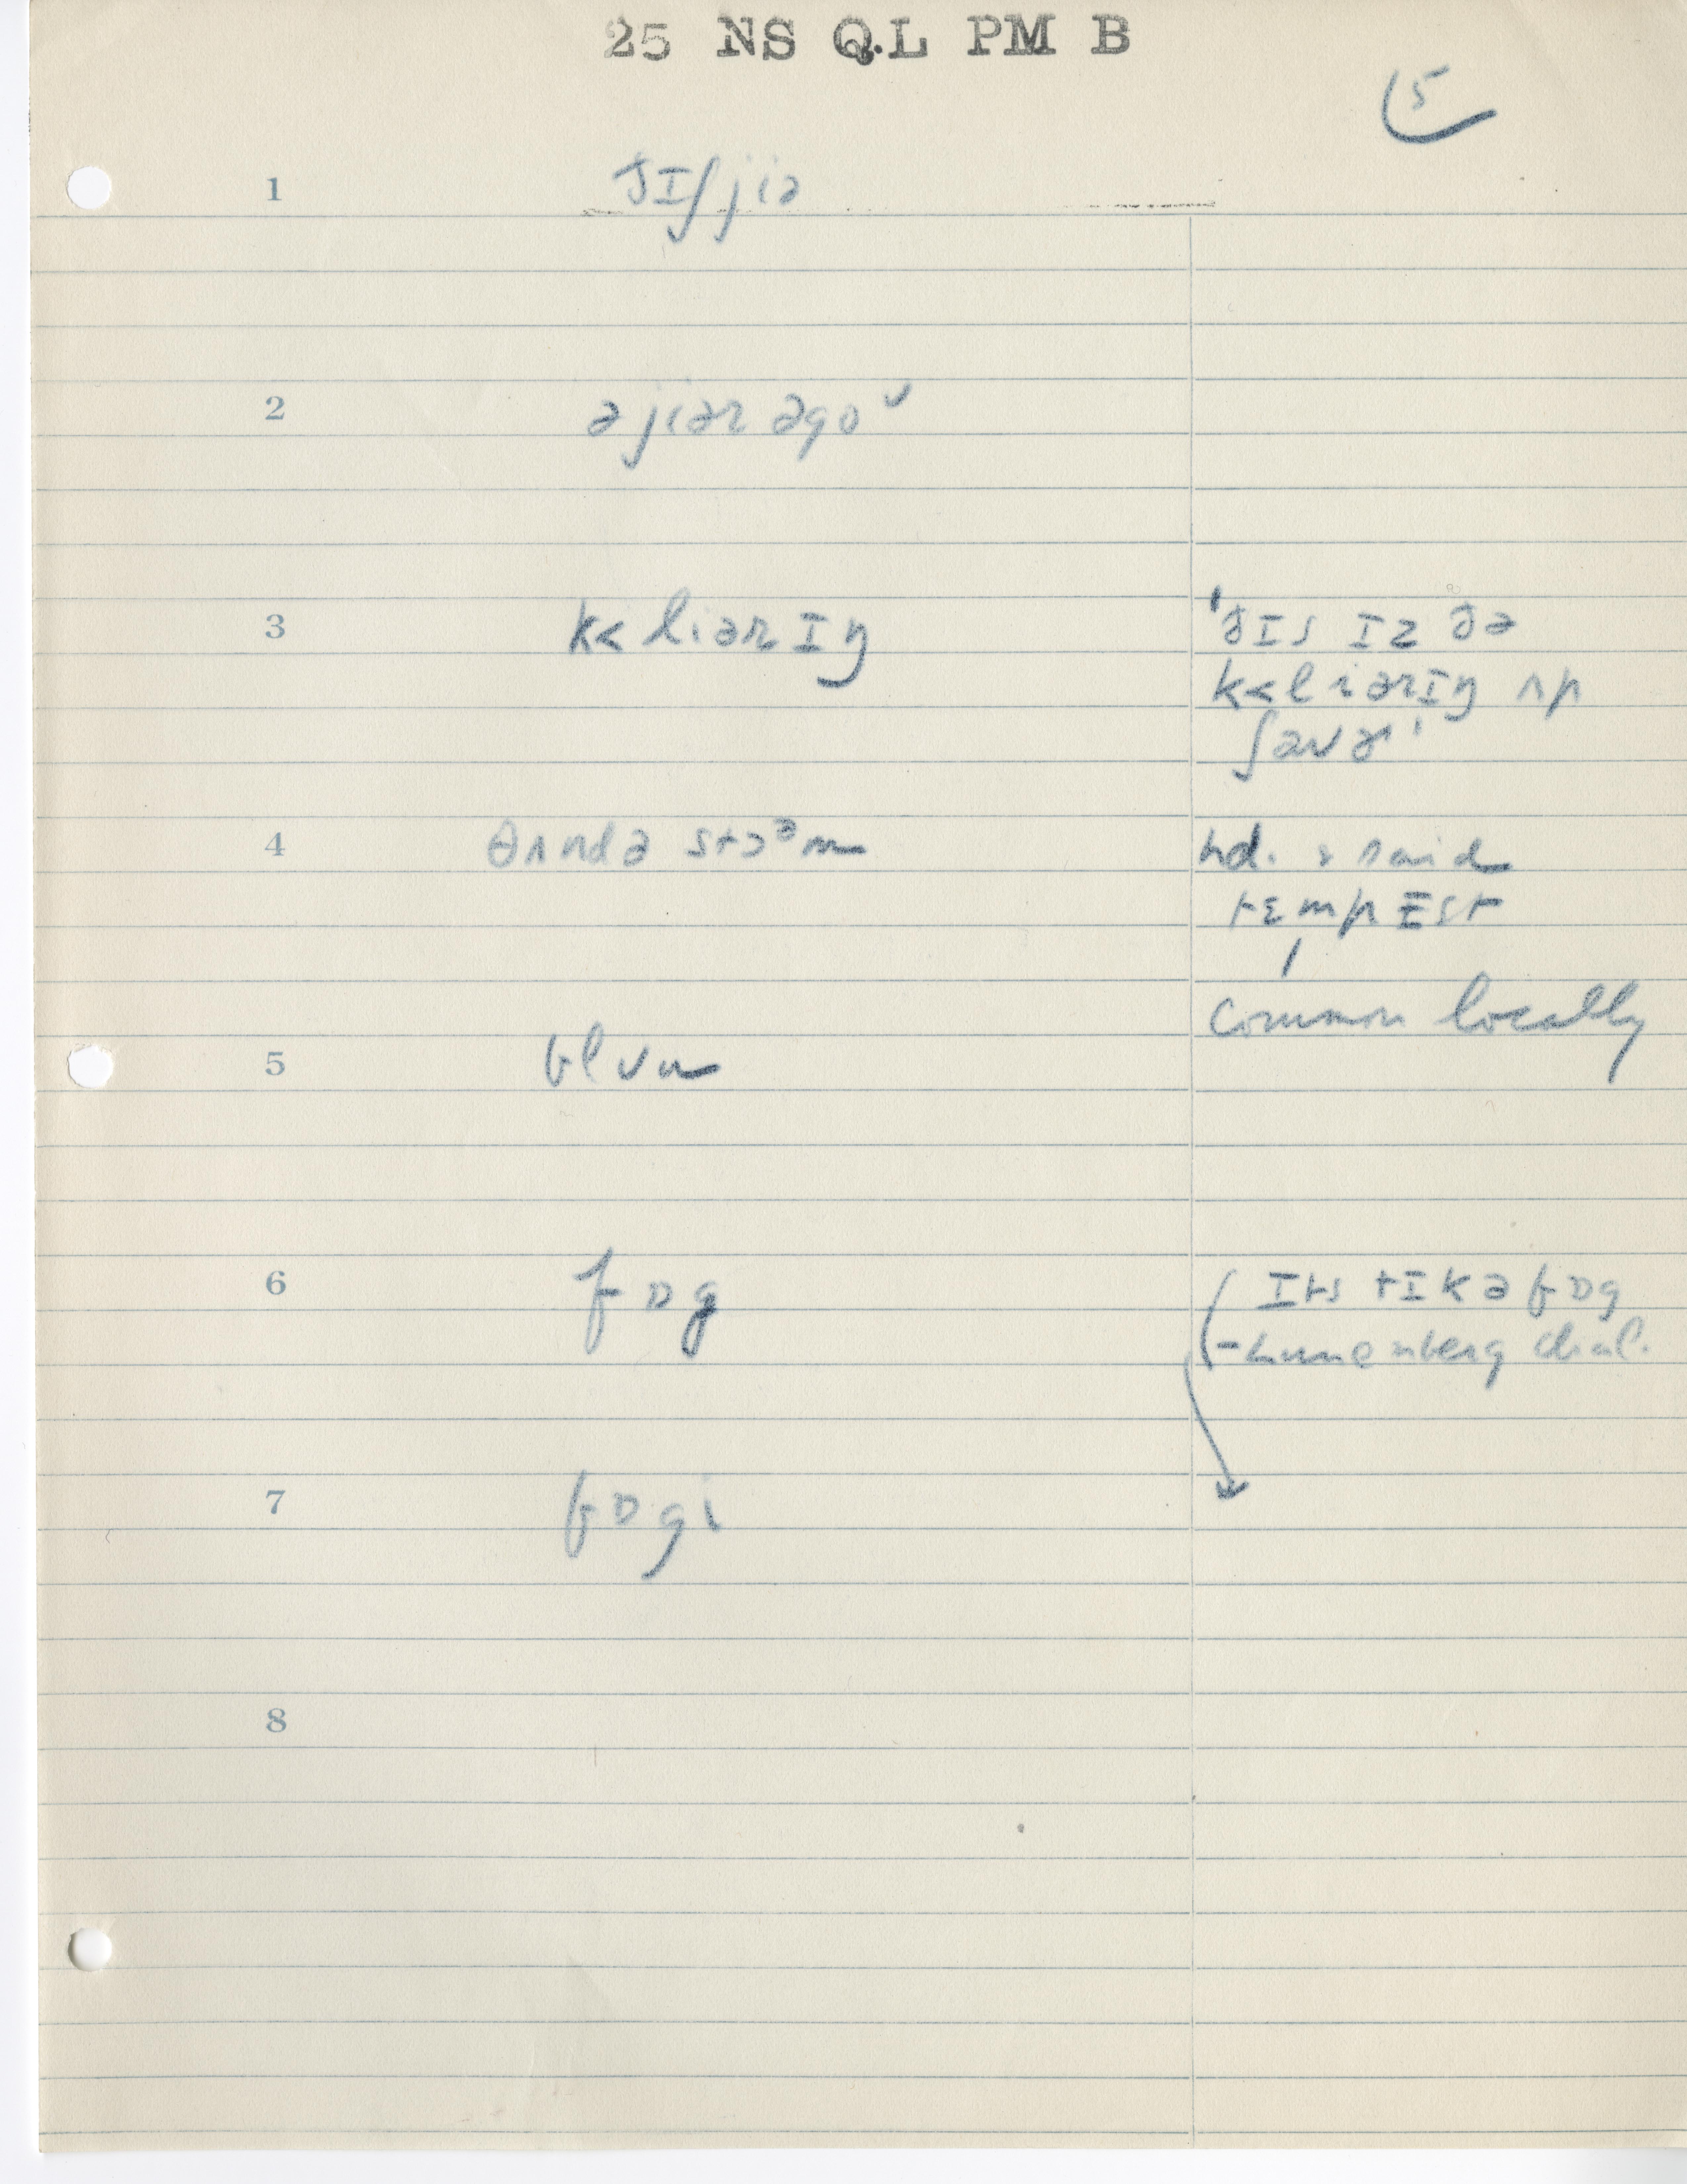 25 NS Q.L PM B
5
1 ðɪʃ jiə
2 ə jiər əgoᵛ
3 k< liərɪŋ
'ðɪs ɪz ðə
k< liərɪŋ ʌp
ʃaʊɚ'
4 θʌndə stɔᵊm
hd. & said
tɛmpɛst
common locally
5
6 fɒg
ɪts tɪkə fɒg
- Lunenberg dial.
7 fɒgi
8